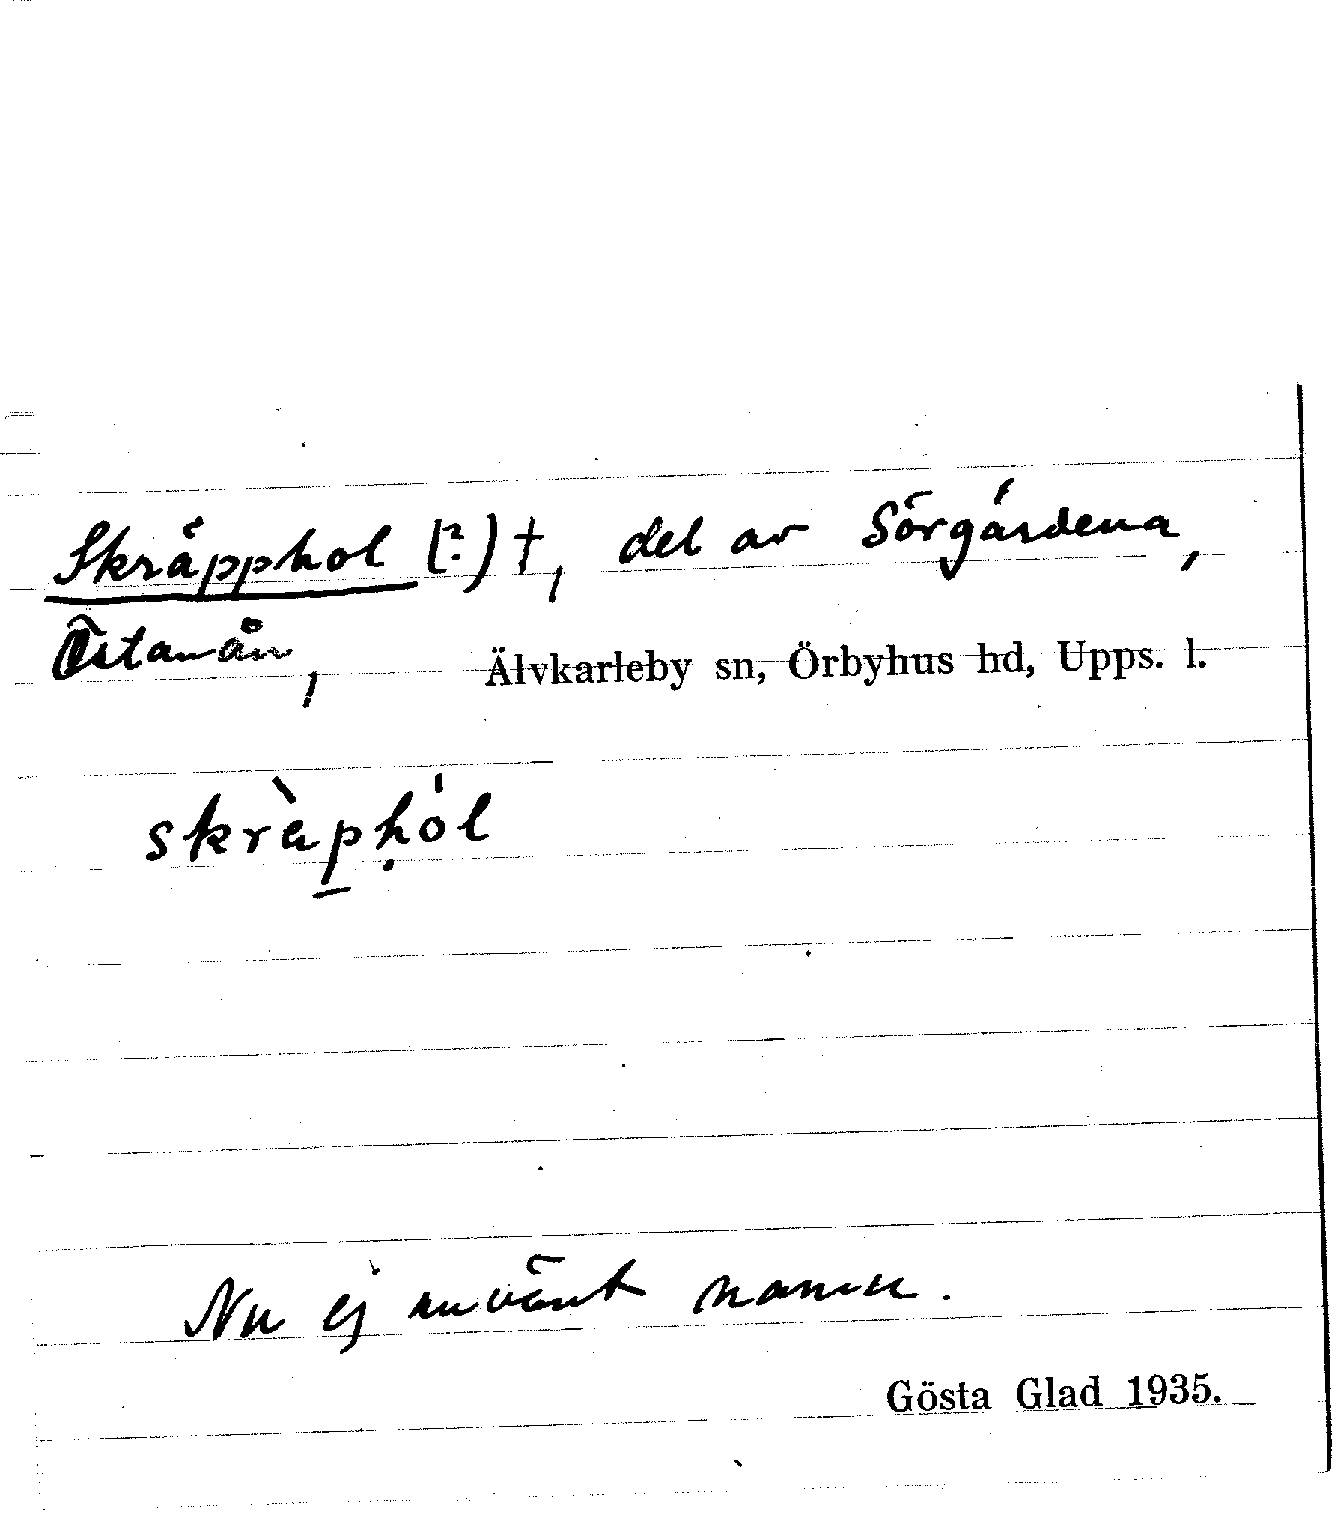 Skräpphol (?) †, del av Sörgårdena,
Östanån, Älvkarleby sn, Örbyhus hd, Upps. l.
skræ̀p̠ḥól
Nu ej använt namn.
Gösta Glad 1935.